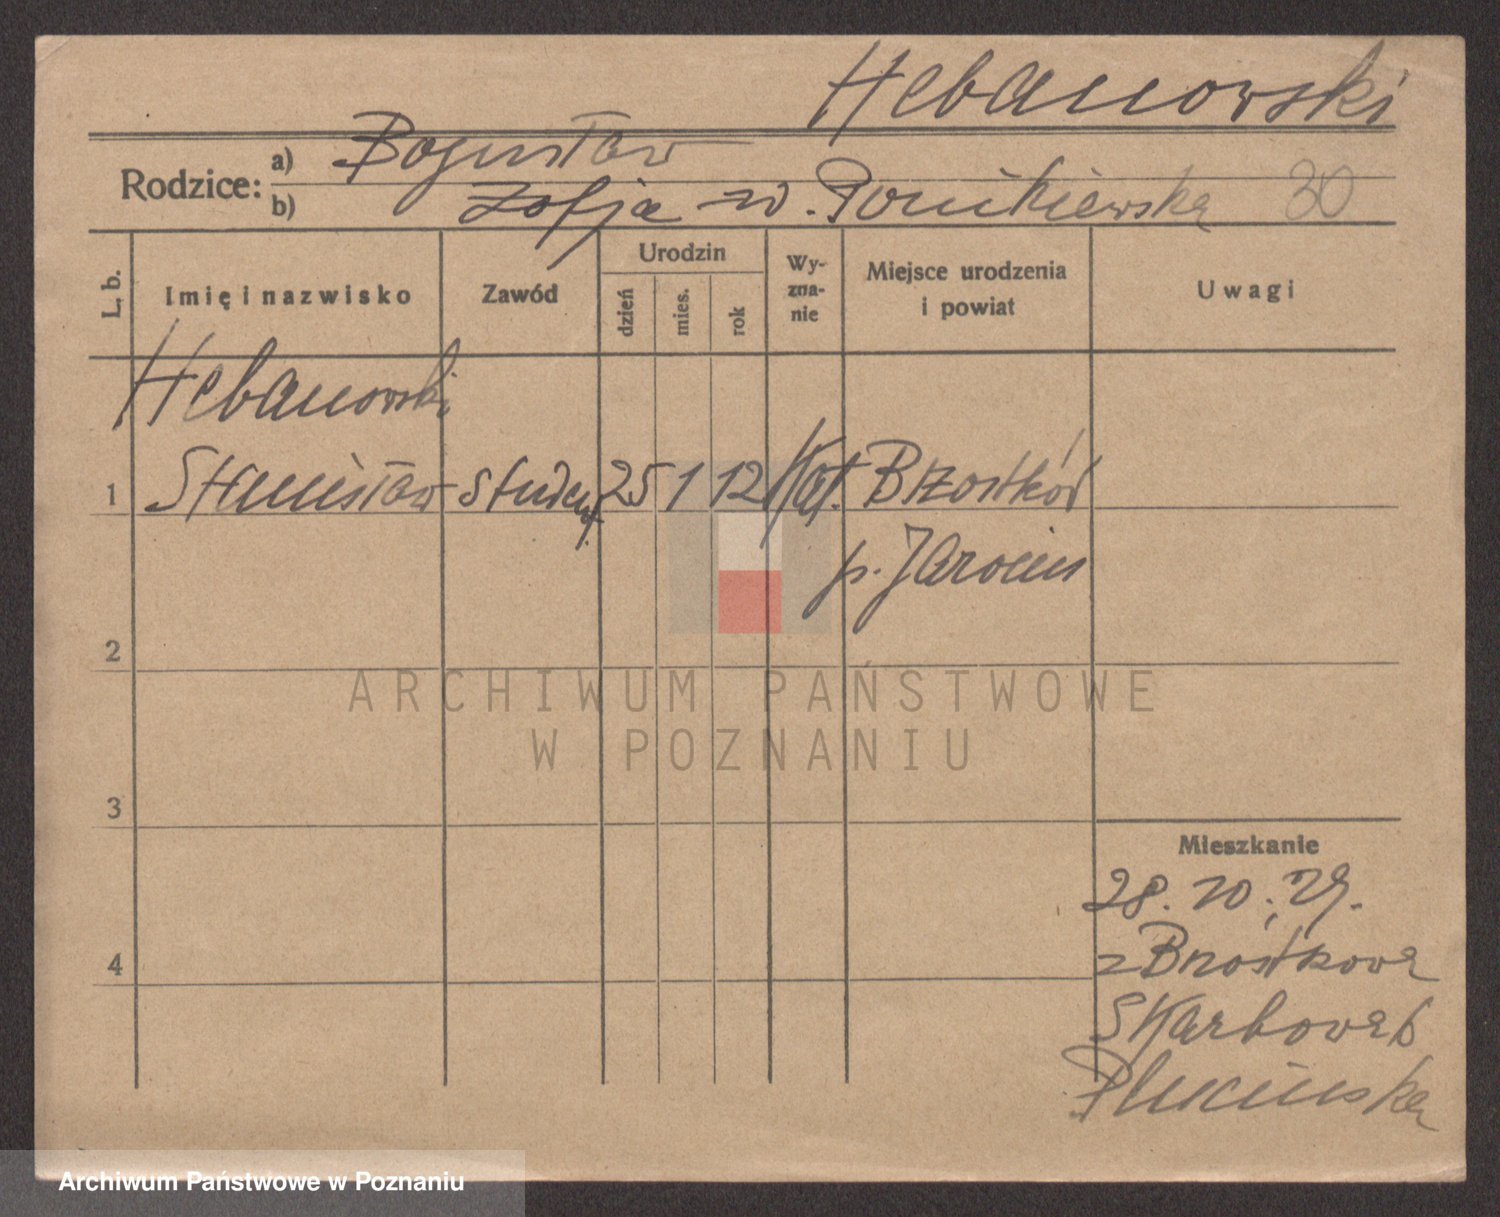 Hebanowski
Rodzice: a) Bogusław
b) Zofja z d. Ponikiewską 30
L. b. Imię i nazwisko Zawód Urodzin dzień mies. rok Wy-zna-nie Miejsce urodzenia i powiat Uwagi
Hebanowski
1 Stanisław Student. 25 1 12 Kat. Brzostków
p. Jarocin
2
ARCHIWUM PAŃSTWOWE
W POZNANIU
3
Mieszkanie
28. 10. 29.
z Brzostkowa
4
Skarbowa 6
Plucińska
Archiwum Państwowe w Poznaniu